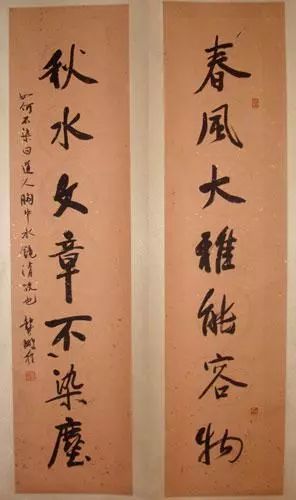 春风大雅能容物
秋水文章不染塵
如何不染曰道人胸中水鏡清故也 龔鵬程